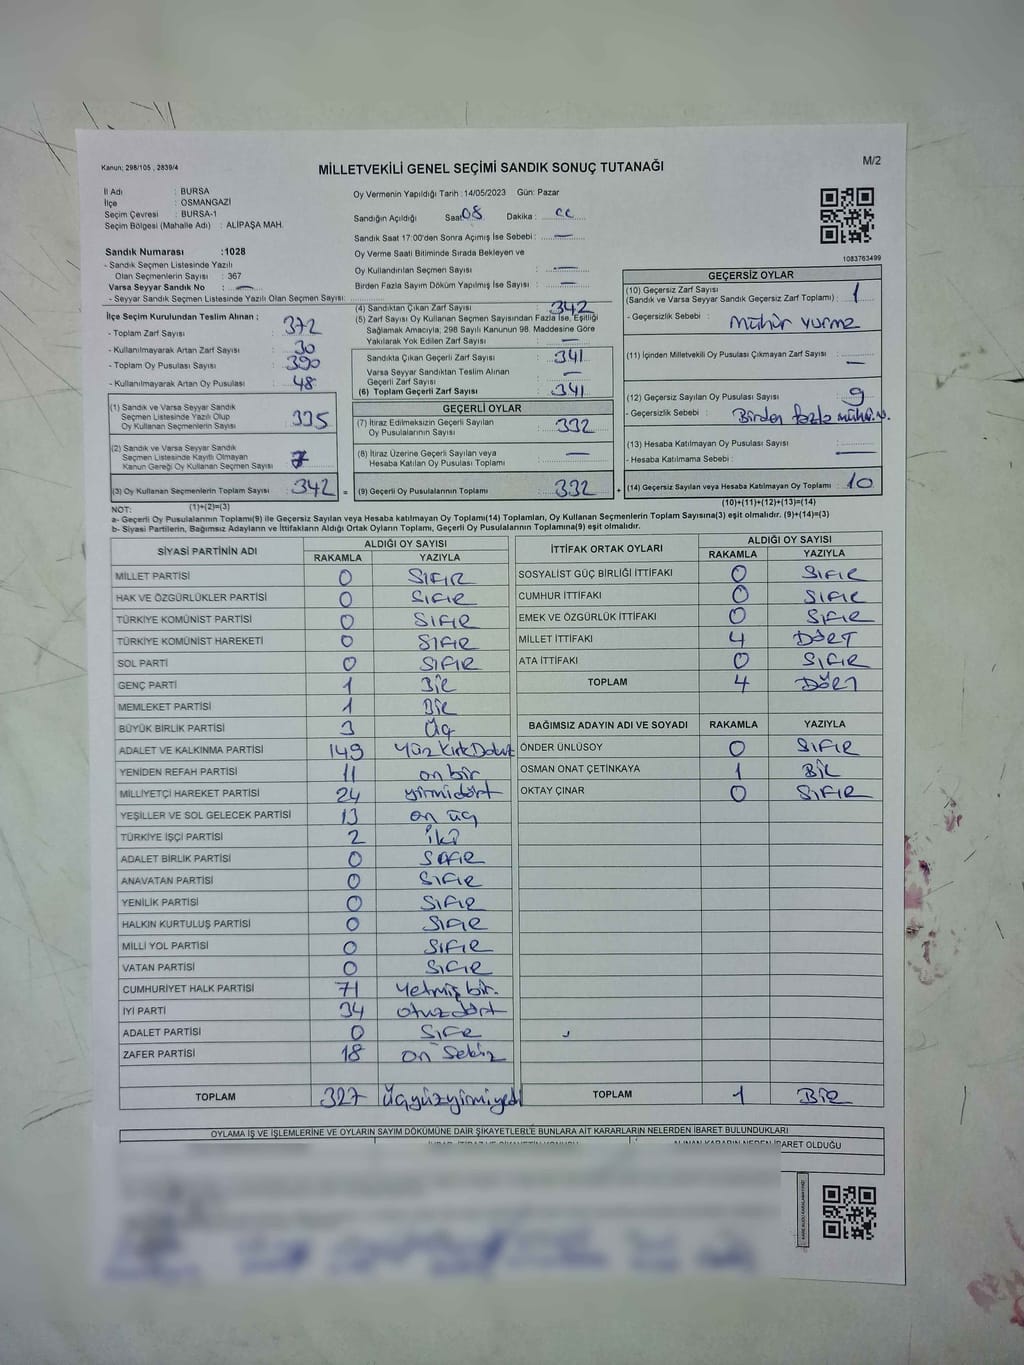 Kanun; 298/105 , 2839/4
MİLLETVEKİLİ GENEL SEÇİMİ SANDIK SONUÇ TUTANAĞI
M/2
İl Adı : BURSA
İlçe : OSMANGAZİ
Seçim Çevresi : BURSA-1
Seçim Bölgesi (Mahalle Adı) : ALİPAŞA MAH.
Sandık Numarası :1028
- Sandık Seçmen Listesinde Yazılı
Olan Seçmenlerin Sayısı : 367
Varsa Seyyar Sandık No : —
- Seyyar Sandık Seçmen Listesinde Yazılı Olan Seçmen Sayısı:
Oy Vermenin Yapıldığı Tarih :14/05/2023 Gün: Pazar
Sandığın Açıldığı Saat: 08 Dakika :
Sandık Saat 17:00'den Sonra Açımış İse Sebebi : —
Oy Verme Saati Bitiminde Sırada Bekleyen ve
Oy Kullandırılan Seçmen Sayısı : —
Birden Fazla Sayım Döküm Yapılmış İse Sayısı : —
1083763499
İlçe Seçim Kurulundan Teslim Alınan ;
- Toplam Zarf Sayısı : 372
- Kullanılmayarak Artan Zarf Sayısı : 30
- Toplam Oy Pusulası Sayısı : 390
- Kullanılmayarak Artan Oy Pusulası : 48
(1) Sandık ve Varsa Seyyar Sandık
Seçmen Listesinde Yazılı Olup
Oy Kullanan Seçmenlerin Sayısı : 335
(2) Sandık ve Varsa Seyyar Sandık
Seçmen Listesinde Kayıtlı Olmayan
Kanun Gereği Oy Kullanan Seçmen Sayısı : 7
(3) Oy Kullanan Seçmenlerin Toplam Sayısı : 342 =
(4) Sandıktan Çıkan Zarf Sayısı : 342
(5) Zarf Sayısı Oy Kullanan Seçmen Sayısından Fazla İse, Eşitliği
Sağlamak Amacıyla, 298 Sayılı Kanunun 98. Maddesine Göre
Yakılarak Yok Edilen Zarf Sayısı : —
Sandıkta Çıkan Geçerli Zarf Sayısı : 341
Varsa Seyyar Sandıktan Teslim Alınan
Geçerli Zarf Sayısı : —
(6) Toplam Geçerli Zarf Sayısı : 341
GEÇERLİ OYLAR
(7) İtiraz Edilmeksizin Geçerli Sayılan
Oy Pusulalarının Sayısı : 332
(8) İtiraz Üzerine Geçerli Sayılan veya
Hesaba Katılan Oy Pusulası Toplamı : —
(9) Geçerli Oy Pusulalarının Toplamı : 332 +
GEÇERSİZ OYLAR
(10) Geçersiz Zarf Sayısı
(Sandık ve Varsa Seyyar Sandık Geçersiz Zarf Toplamı) : 1
- Geçersizlik Sebebi : Mühür vurma
(11) İçinden Milletvekili Oy Pusulası Çıkmayan Zarf Sayısı : —
(12) Geçersiz Sayılan Oy Pusulası Sayısı : 9
- Geçersizlik Sebebi : Birden fazla mühür.
(13) Hesaba Katılmayan Oy Pusulası Sayısı :
- Hesaba Katılmama Sebebi : —
(14) Geçersiz Sayılan veya Hesaba Katılmayan Oy Toplamı : 10
NOT: (1)+(2)=(3)
(10)+(11)+(12)+(13)=(14)
a- Geçerli Oy Pusulalarının Toplamı(9) ile Geçersiz Sayılan veya Hesaba katılmayan Oy Toplamı(14) Toplamları, Oy Kullanan Seçmenlerin Toplam Sayısına(3) eşit olmalıdır. (9)+(14)=(3)
b- Siyasi Partilerin, Bağımsız Adayların ve İttifakların Aldığı Ortak Oyların Toplamı, Geçerli Oy Pusulalarının Toplamına(9) eşit olmalıdır.
SİYASİ PARTİNİN ADI ALDIĞI OY SAYISI
RAKAMLA YAZIYLA
MİLLET PARTİSİ 0 SIFIR
HAK VE ÖZGÜRLÜKLER PARTİSİ 0 SIFIR
TÜRKİYE KOMÜNİST PARTİSİ 0 SIFIR
TÜRKİYE KOMÜNİST HAREKETİ 0 SIFIR
SOL PARTİ 0 SIFIR
GENÇ PARTİ 1 BİR
MEMLEKET PARTİSİ 1 BİR
BÜYÜK BİRLİK PARTİSİ 3 Üç
ADALET VE KALKINMA PARTİSİ 149 Yüz Kırk Dokuz
YENİDEN REFAH PARTİSİ 11 on bir
MİLLİYETÇİ HAREKET PARTİSİ 24 yirmidört
YEŞİLLER VE SOL GELECEK PARTİSİ 13 on üç
TÜRKİYE İŞÇİ PARTİSİ 2 İki
ADALET BİRLİK PARTİSİ 0 SIFIR
ANAVATAN PARTİSİ 0 SIFIR
YENİLİK PARTİSİ 0 SIFIR
HALKIN KURTULUŞ PARTİSİ 0 SIFIR
MİLLİ YOL PARTİSİ 0 SIFIR
VATAN PARTİSİ 0 SIFIR
CUMHURİYET HALK PARTİSİ 71 Yetmiş bir.
İYİ PARTİ 34 otuz dört
ADALET PARTİSİ 0 SIFIR
ZAFER PARTİSİ 18 on sekiz
TOPLAM 327 Üçyüzyirmiyedi
İTTİFAK ORTAK OYLARI ALDIĞI OY SAYISI
RAKAMLA YAZIYLA
SOSYALİST GÜÇ BİRLİĞİ İTTİFAKI 0 SIFIR
CUMHUR İTTİFAKI 0 SIFIR
EMEK VE ÖZGÜRLÜK İTTİFAKI 0 SIFIR
MİLLET İTTİFAKI 4 DÖRT
ATA İTTİFAKI 0 SIFIR
TOPLAM 4 DÖRT
BAĞIMSIZ ADAYIN ADI VE SOYADI RAKAMLA YAZIYLA
ÖNDER ÜNLÜSOY 0 SIFIR
OSMAN ONAT ÇETİNKAYA 1 BİR
OKTAY ÇINAR 0 SIFIR
TOPLAM 1 BİR
OYLAMA İŞ VE İŞLEMLERİNE VE OYLARIN SAYIM DÖKÜMÜNE DAİR ŞİKAYETLERLE BUNLARA AİT KARARLARIN NELERDEN İBARET BULUNDUKLARI
ALINAN KARARIN NEDEN İBARET OLDUĞU